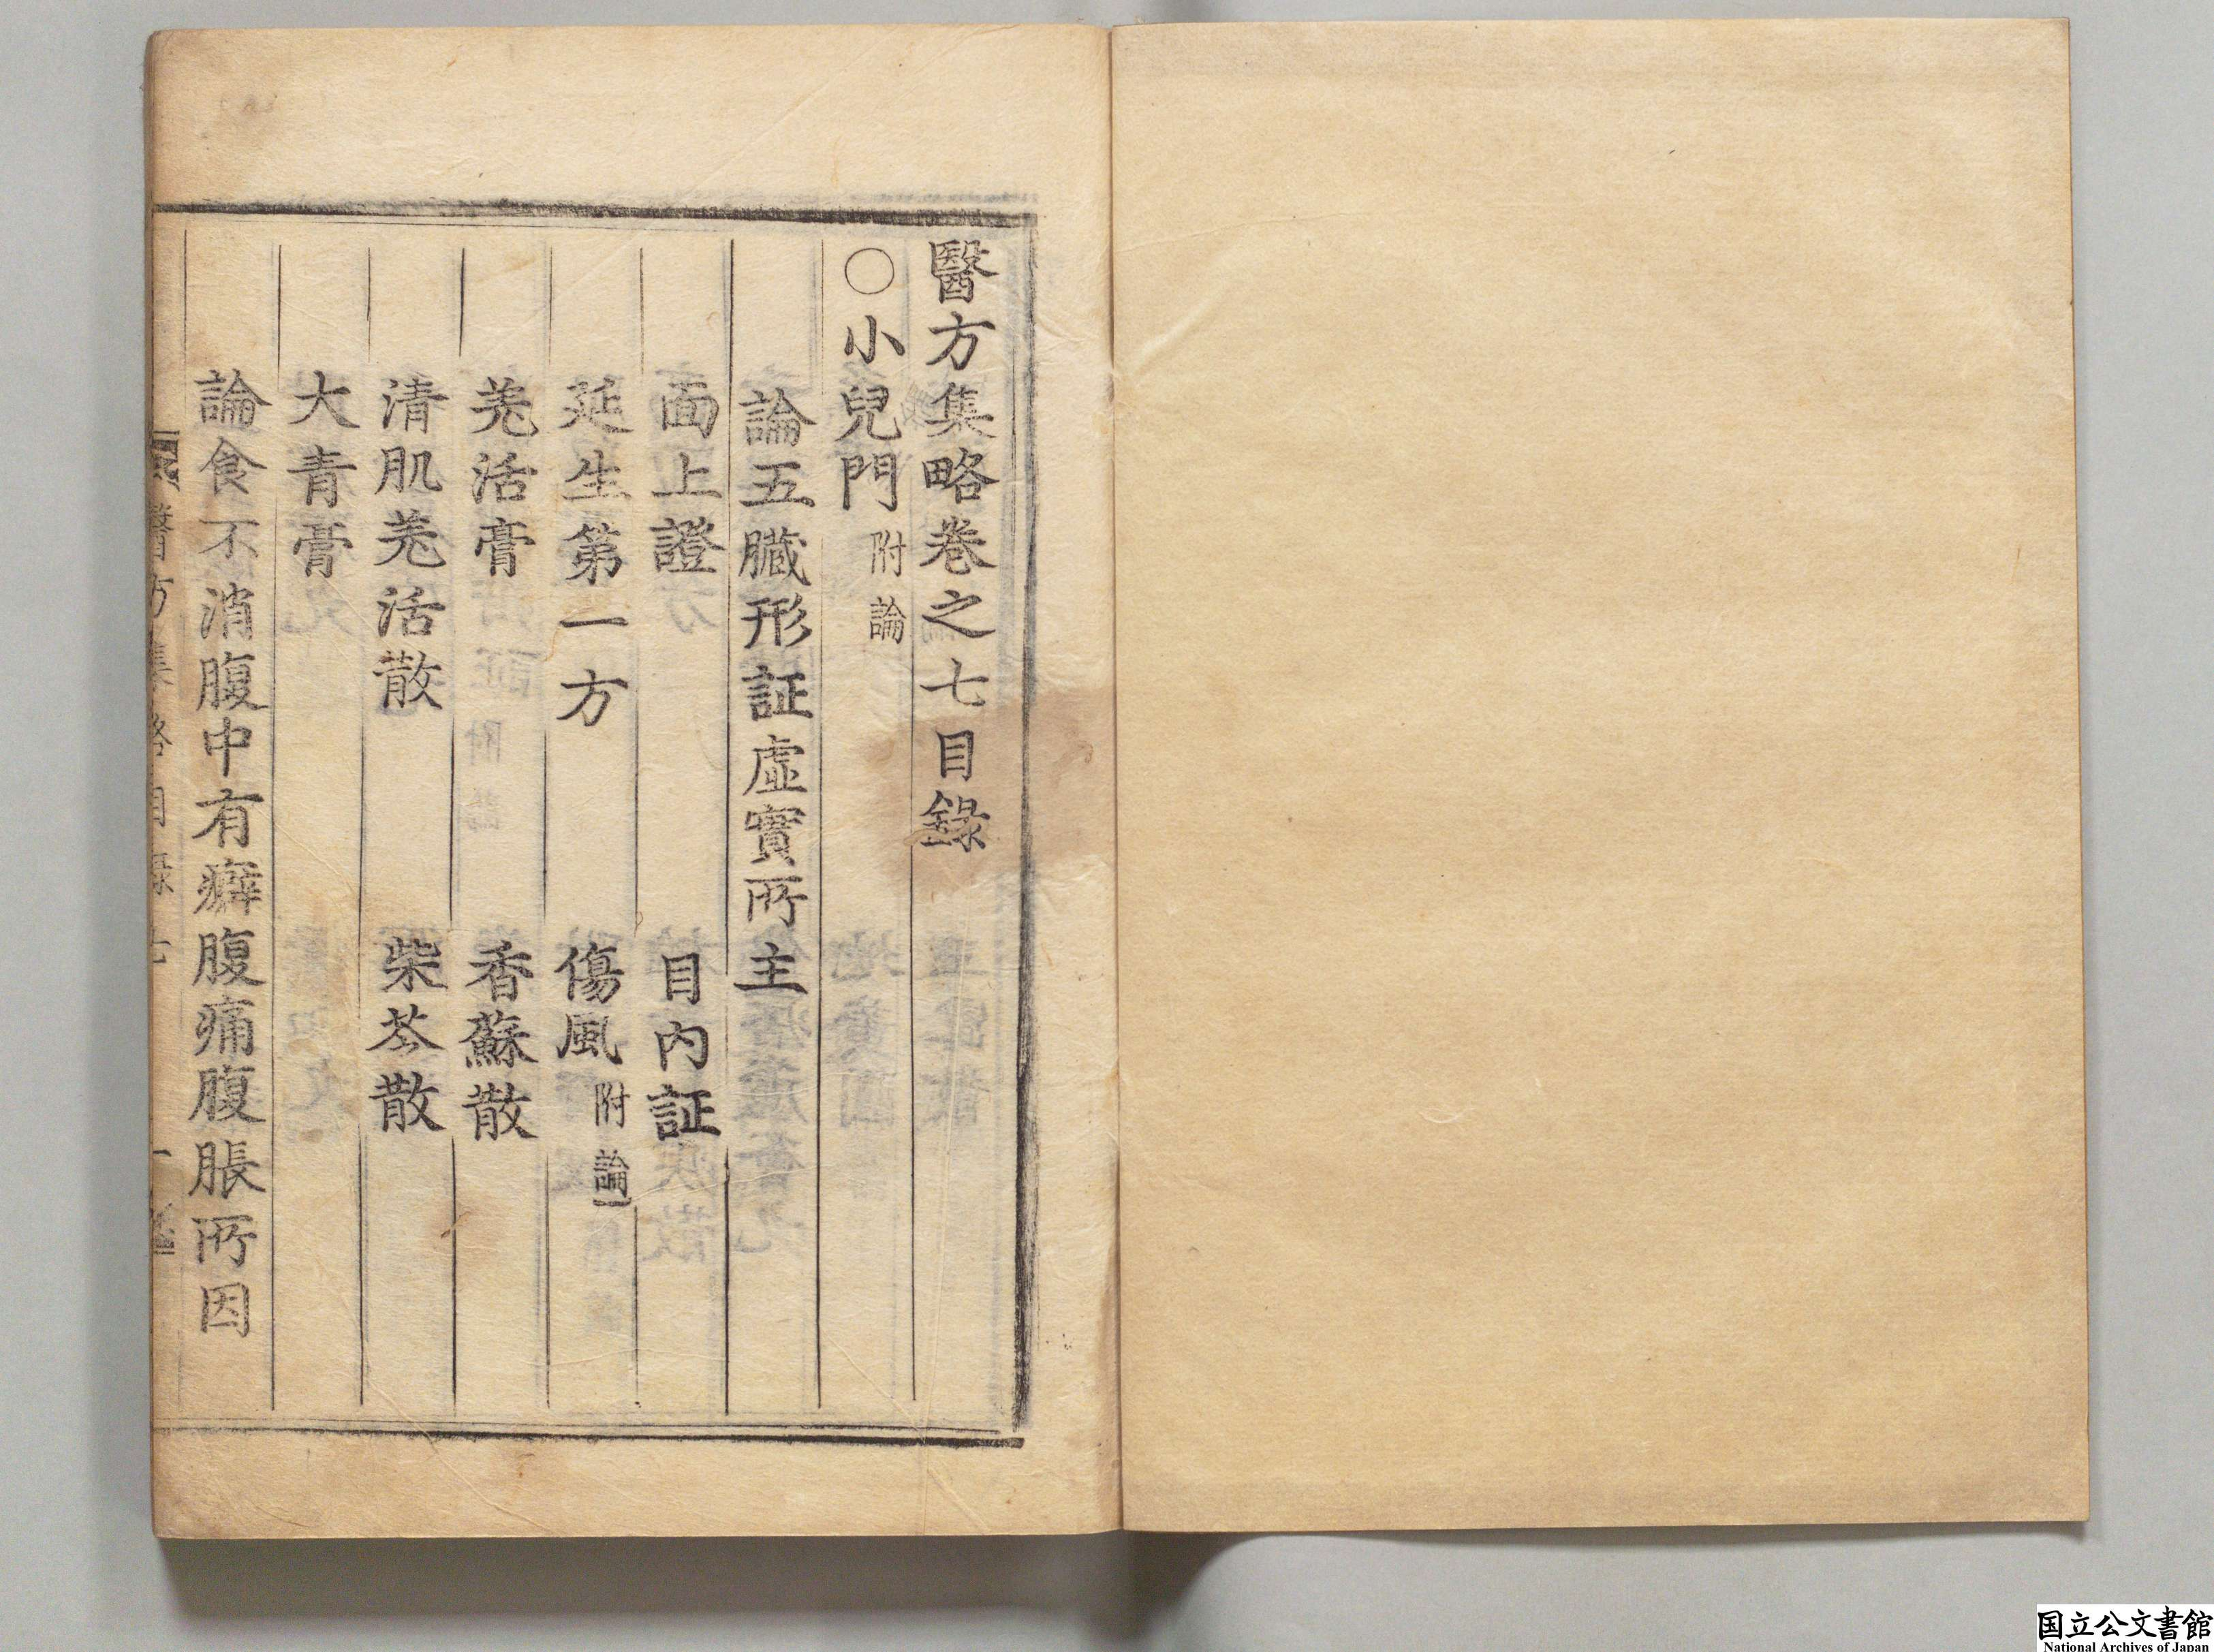 醫方集略卷之七目錄
○小兒門 附論
論五臟形証虛實所主
面上證 目內証
延生第一方 傷風 附論
羗活膏 香蘇散
清肌羗活散 柴芩散
大青膏
論食不消腹中有癖腹痛腹脹所因
醫方集略目録七 一
国立公文書館
National Archives of Japan